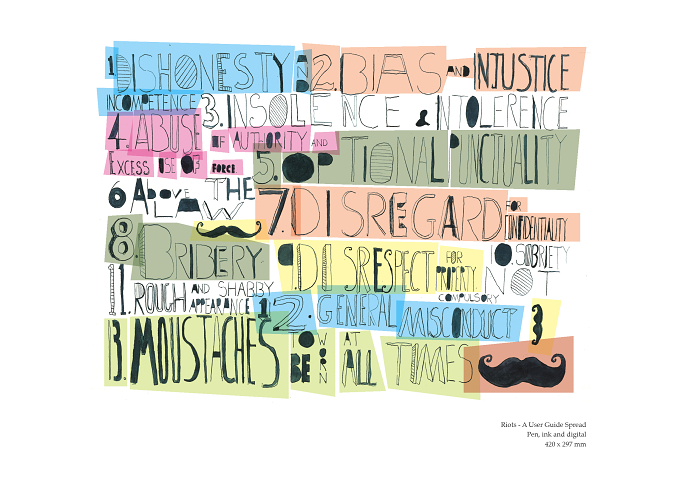 1 DISHONESTY AND 2. BIAS AND INJUSTICE
INCOMPETENCE 3. INSOLENCE & INTOLERENCE
4. ABUSE OF AUTHORITY AND
EXCESS USE OF FORCE 5. OPTIONAL PUNCTUALITY
6 ABOVE THE LAW 7. DISREGARD FOR CONFIDENTIALITY
8. BRIBERY 9. DISRESPECT FOR PROPERTY 10. SOBRIETY NOT COMPULSORY
11. ROUGH AND SHABBY APPEARANCE 12. GENERAL MISCONDUCT
13. MOUSTACHES TO BE WORN AT ALL TIMES
Riots - A User Guide Spread
Pen, ink and digital
420 x 297 mm